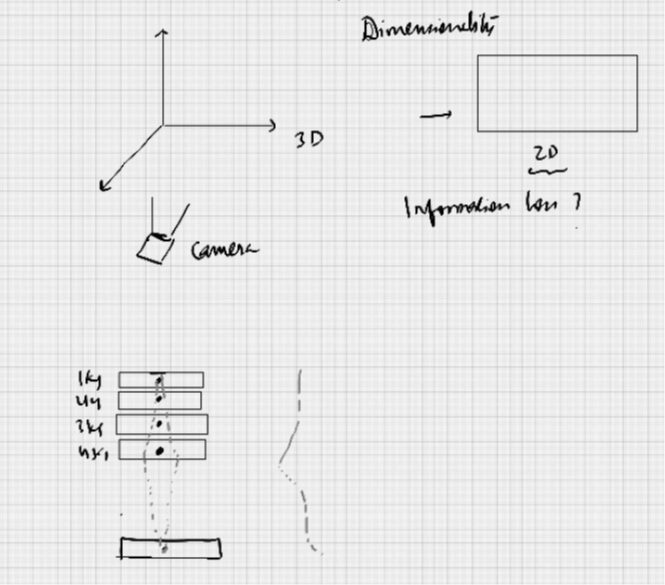 Dimensionality
3D
2D
Information loss ?
Camera
1kg
3kg